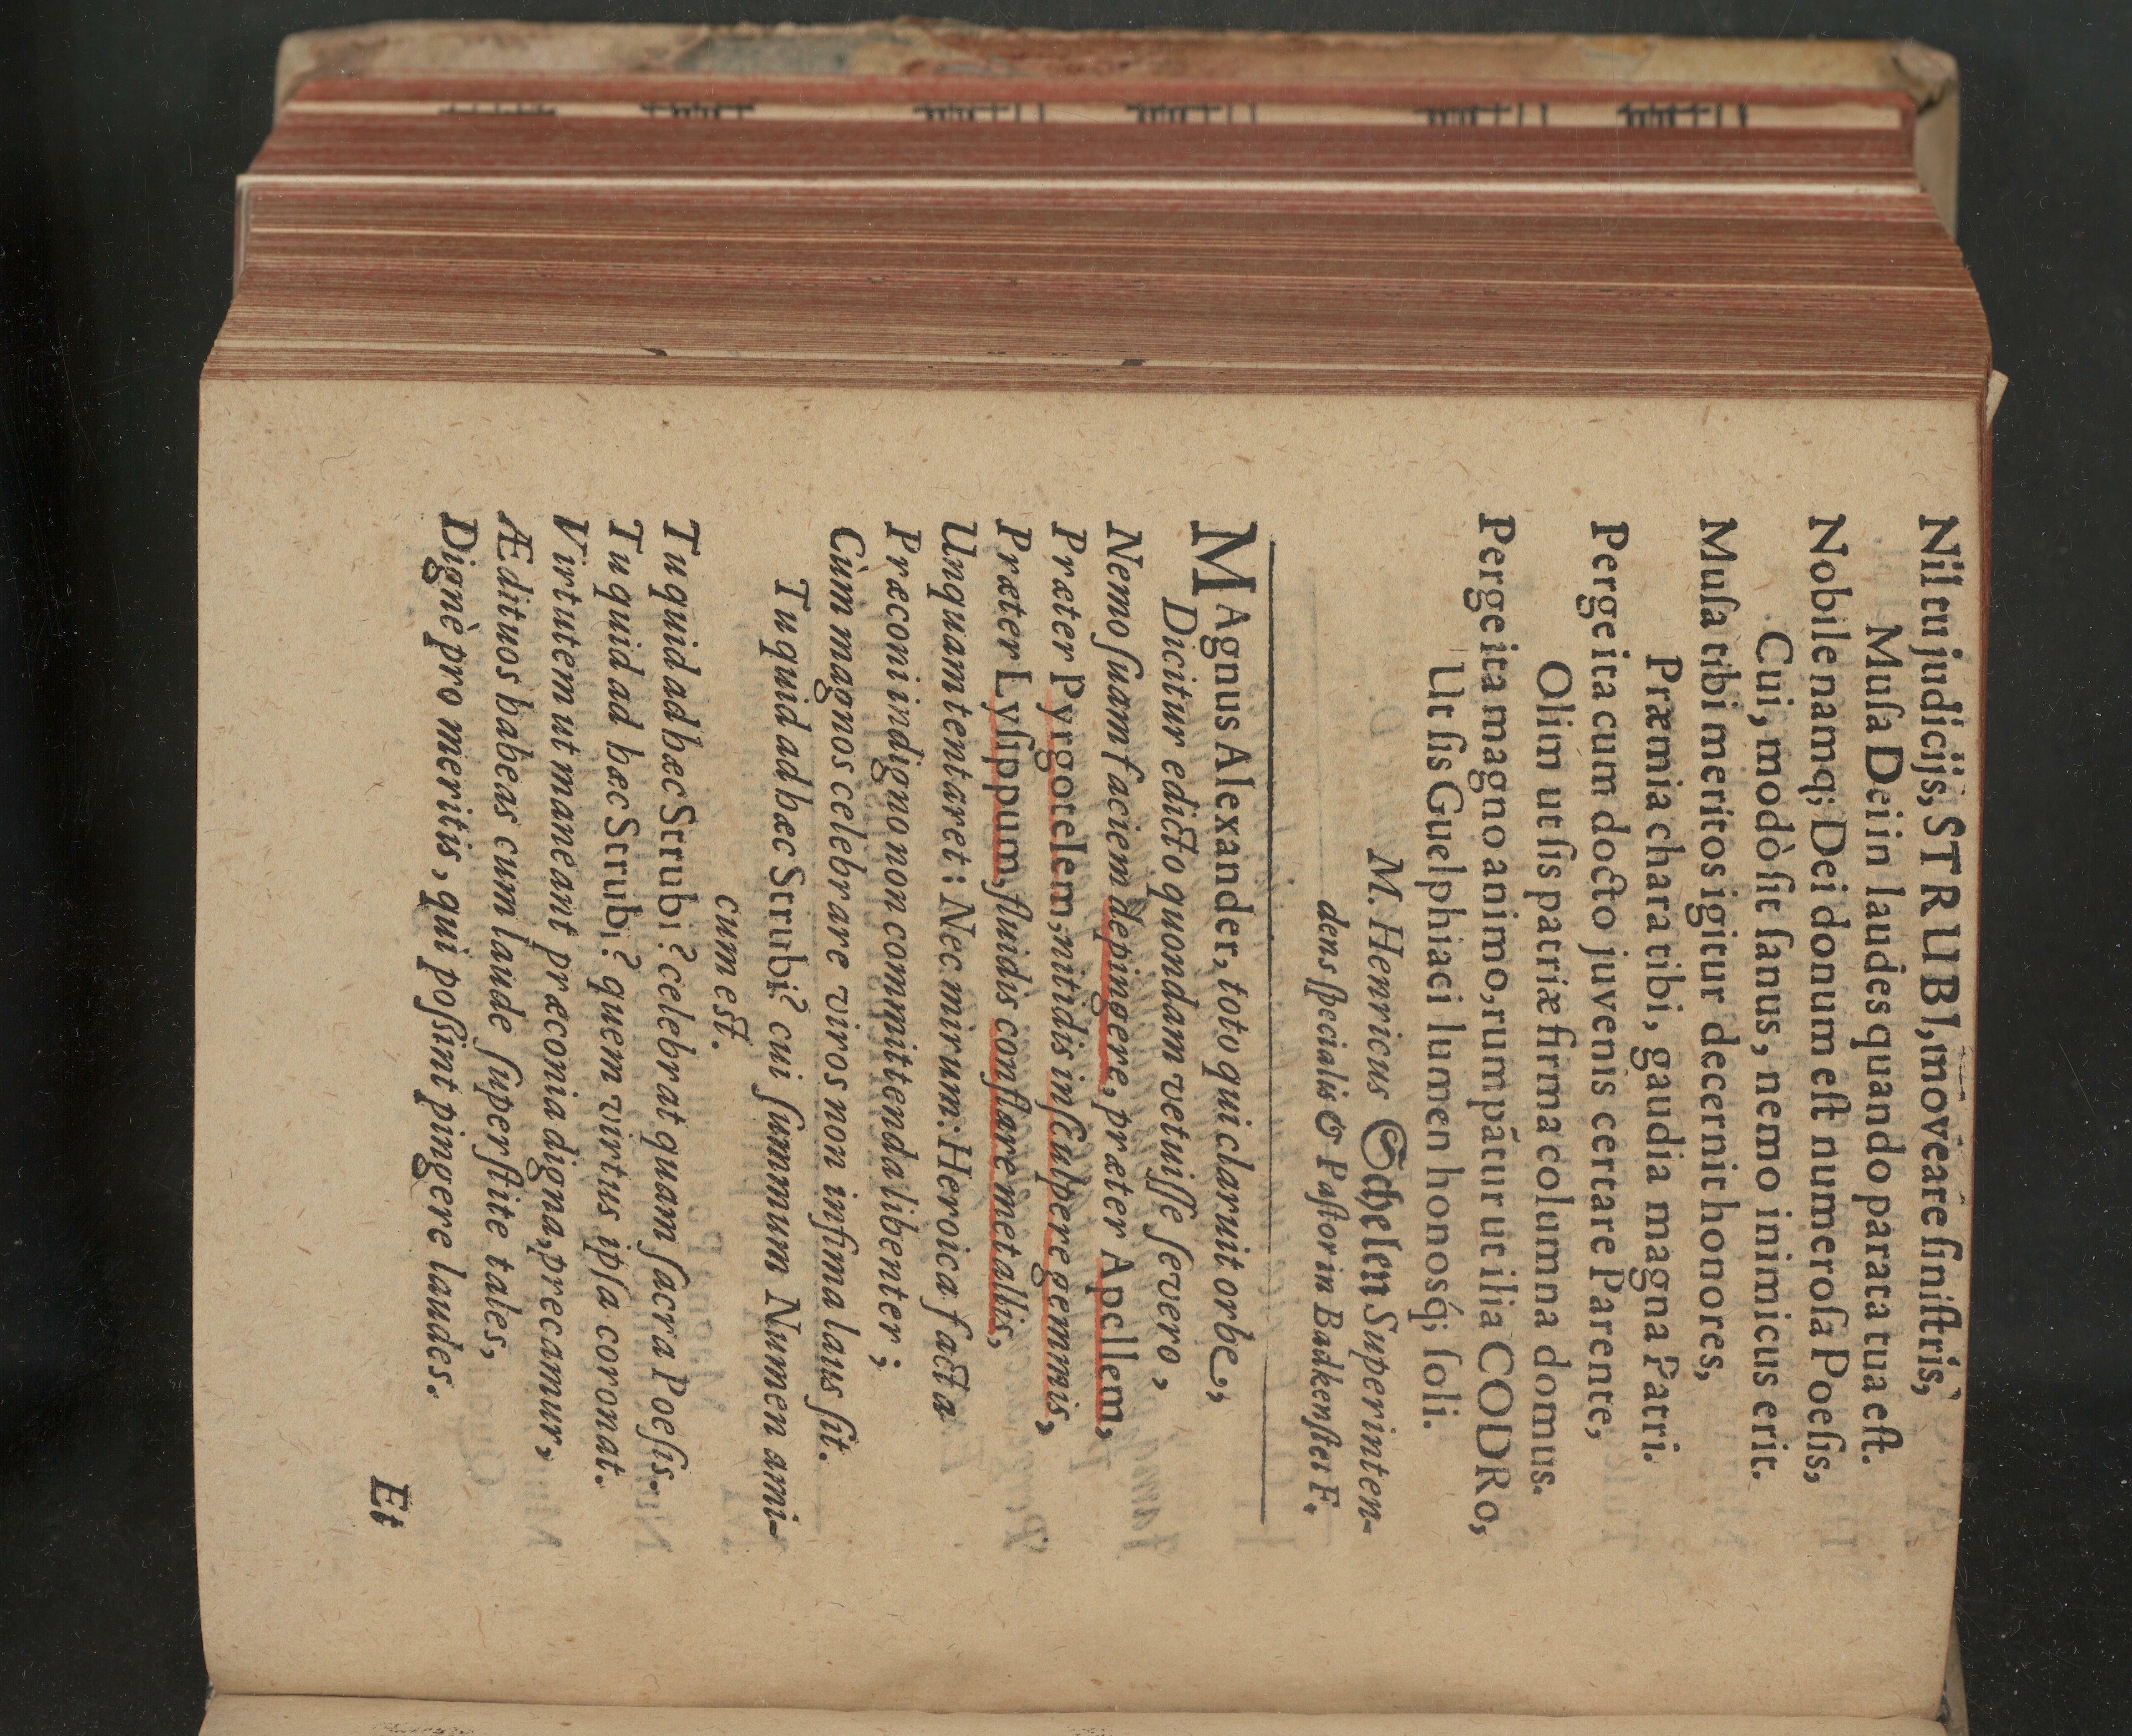 Nil tu judicijs, STRUBI, moveare ſiniſtris,
Muſa Dei in laudes quando parata tua eſt.
Nobile namq; Dei donum eſt numeroſa Poeſis,
Cui, modò ſit ſanus, nemo inimicus erit.
Muſa tibi meritos igitur decernit honores,
Præmia chara tibi, gaudia magna Patri.
Perge ita cum docto juvenis certare Parente,
Olim ut ſis patriæ firma columna domus.
Perge ita magno animo, rumpãtur ut ilia CODRo,
Ut ſis Guelphiaci lumen honosq́; ſoli.
M. Henricus Schelen Superinten-
dens ſpecialis & Paſtor in Badkenſter F.
MAgnus Alexander, toto qui claruit orbe,
Dicitur edicto quondam vetuiſſe ſevero,
Nemo ſuam faciem depingere, præter Apellem,
Præter Pyrgotelem, nitidis inſculpere gemmis,
Præter Lyſippum, fluidis conflare metallis,
Unquam tentaret: Nec mirum: Heroica facta
Præconi indigno non committenda libenter;
Cùm magnos celebrare viros non infima laus ſit.
Tu quid ad hæc Strubi? cui ſummum Numen ami-
cum eſt.
Tu quid ad hæc Strubi? celebrat quam ſacra Poeſis.
Tu quid ad hæc Strubi? quem virtus ipſa coronat.
Virtutem ut maneant præconia digna, precamur,
Ædituos habeas cum laude ſuperſtite tales,
Dignè pro meritis, qui poſſint pingere laudes.
Et